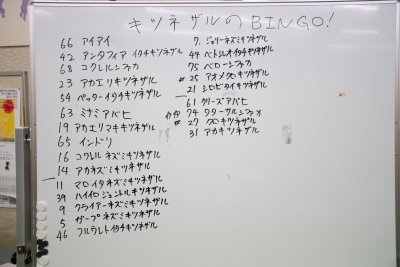 キツネザルのBINGO!
66 アイアイ
42 アンタフィア イタチキツネザル
68 コクレルシファカ
23 アカエリキツネザル
54 ペッターイタチキツネザル
63 ミナミアバヒ
19 アカエリマキキツネザル
65 インドリ
16 コクレルネズミキツネザル
14 アカネズミキツネザル
11 マロイタネズミキツネザル
39 ハイイロジェントルキツネザル
9 クライアーネズミキツネザル
5 ガープネズミキツネザル
46 フルウレトイタチキツネザル
7. ジョリーネズミキツネザル
44 ベトシレオイタチキツネザル
75 ペローシファカ
25 アオメクロキツネザル
21 シロビタイキツネザル
61 クリーズアバヒ
74 タターサルシファカ
27 クロキツネザル
31 アカキツネザル